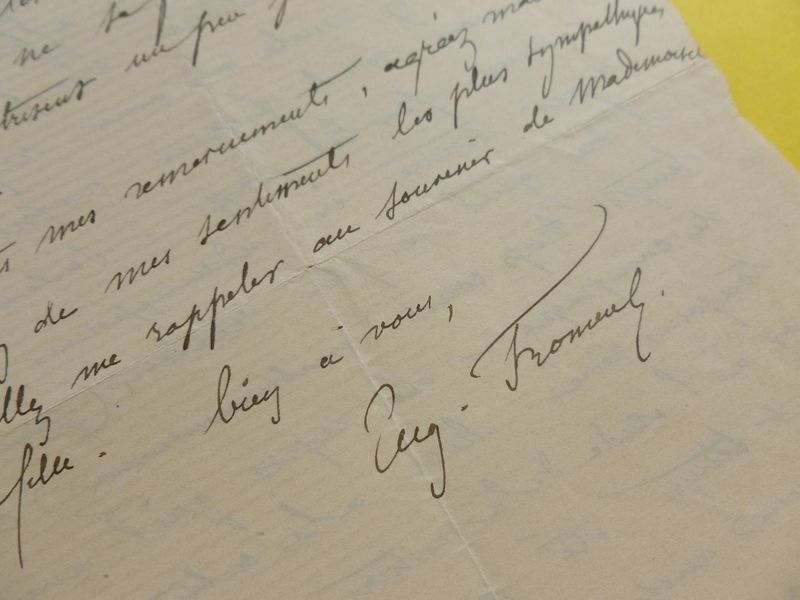 ne
un peu
mes remerciements, agréez
de mes sentiments les plus sympathiques
me rappeler au souvenir de Mademoise
fille. bien à vous,
Eug. Froment.